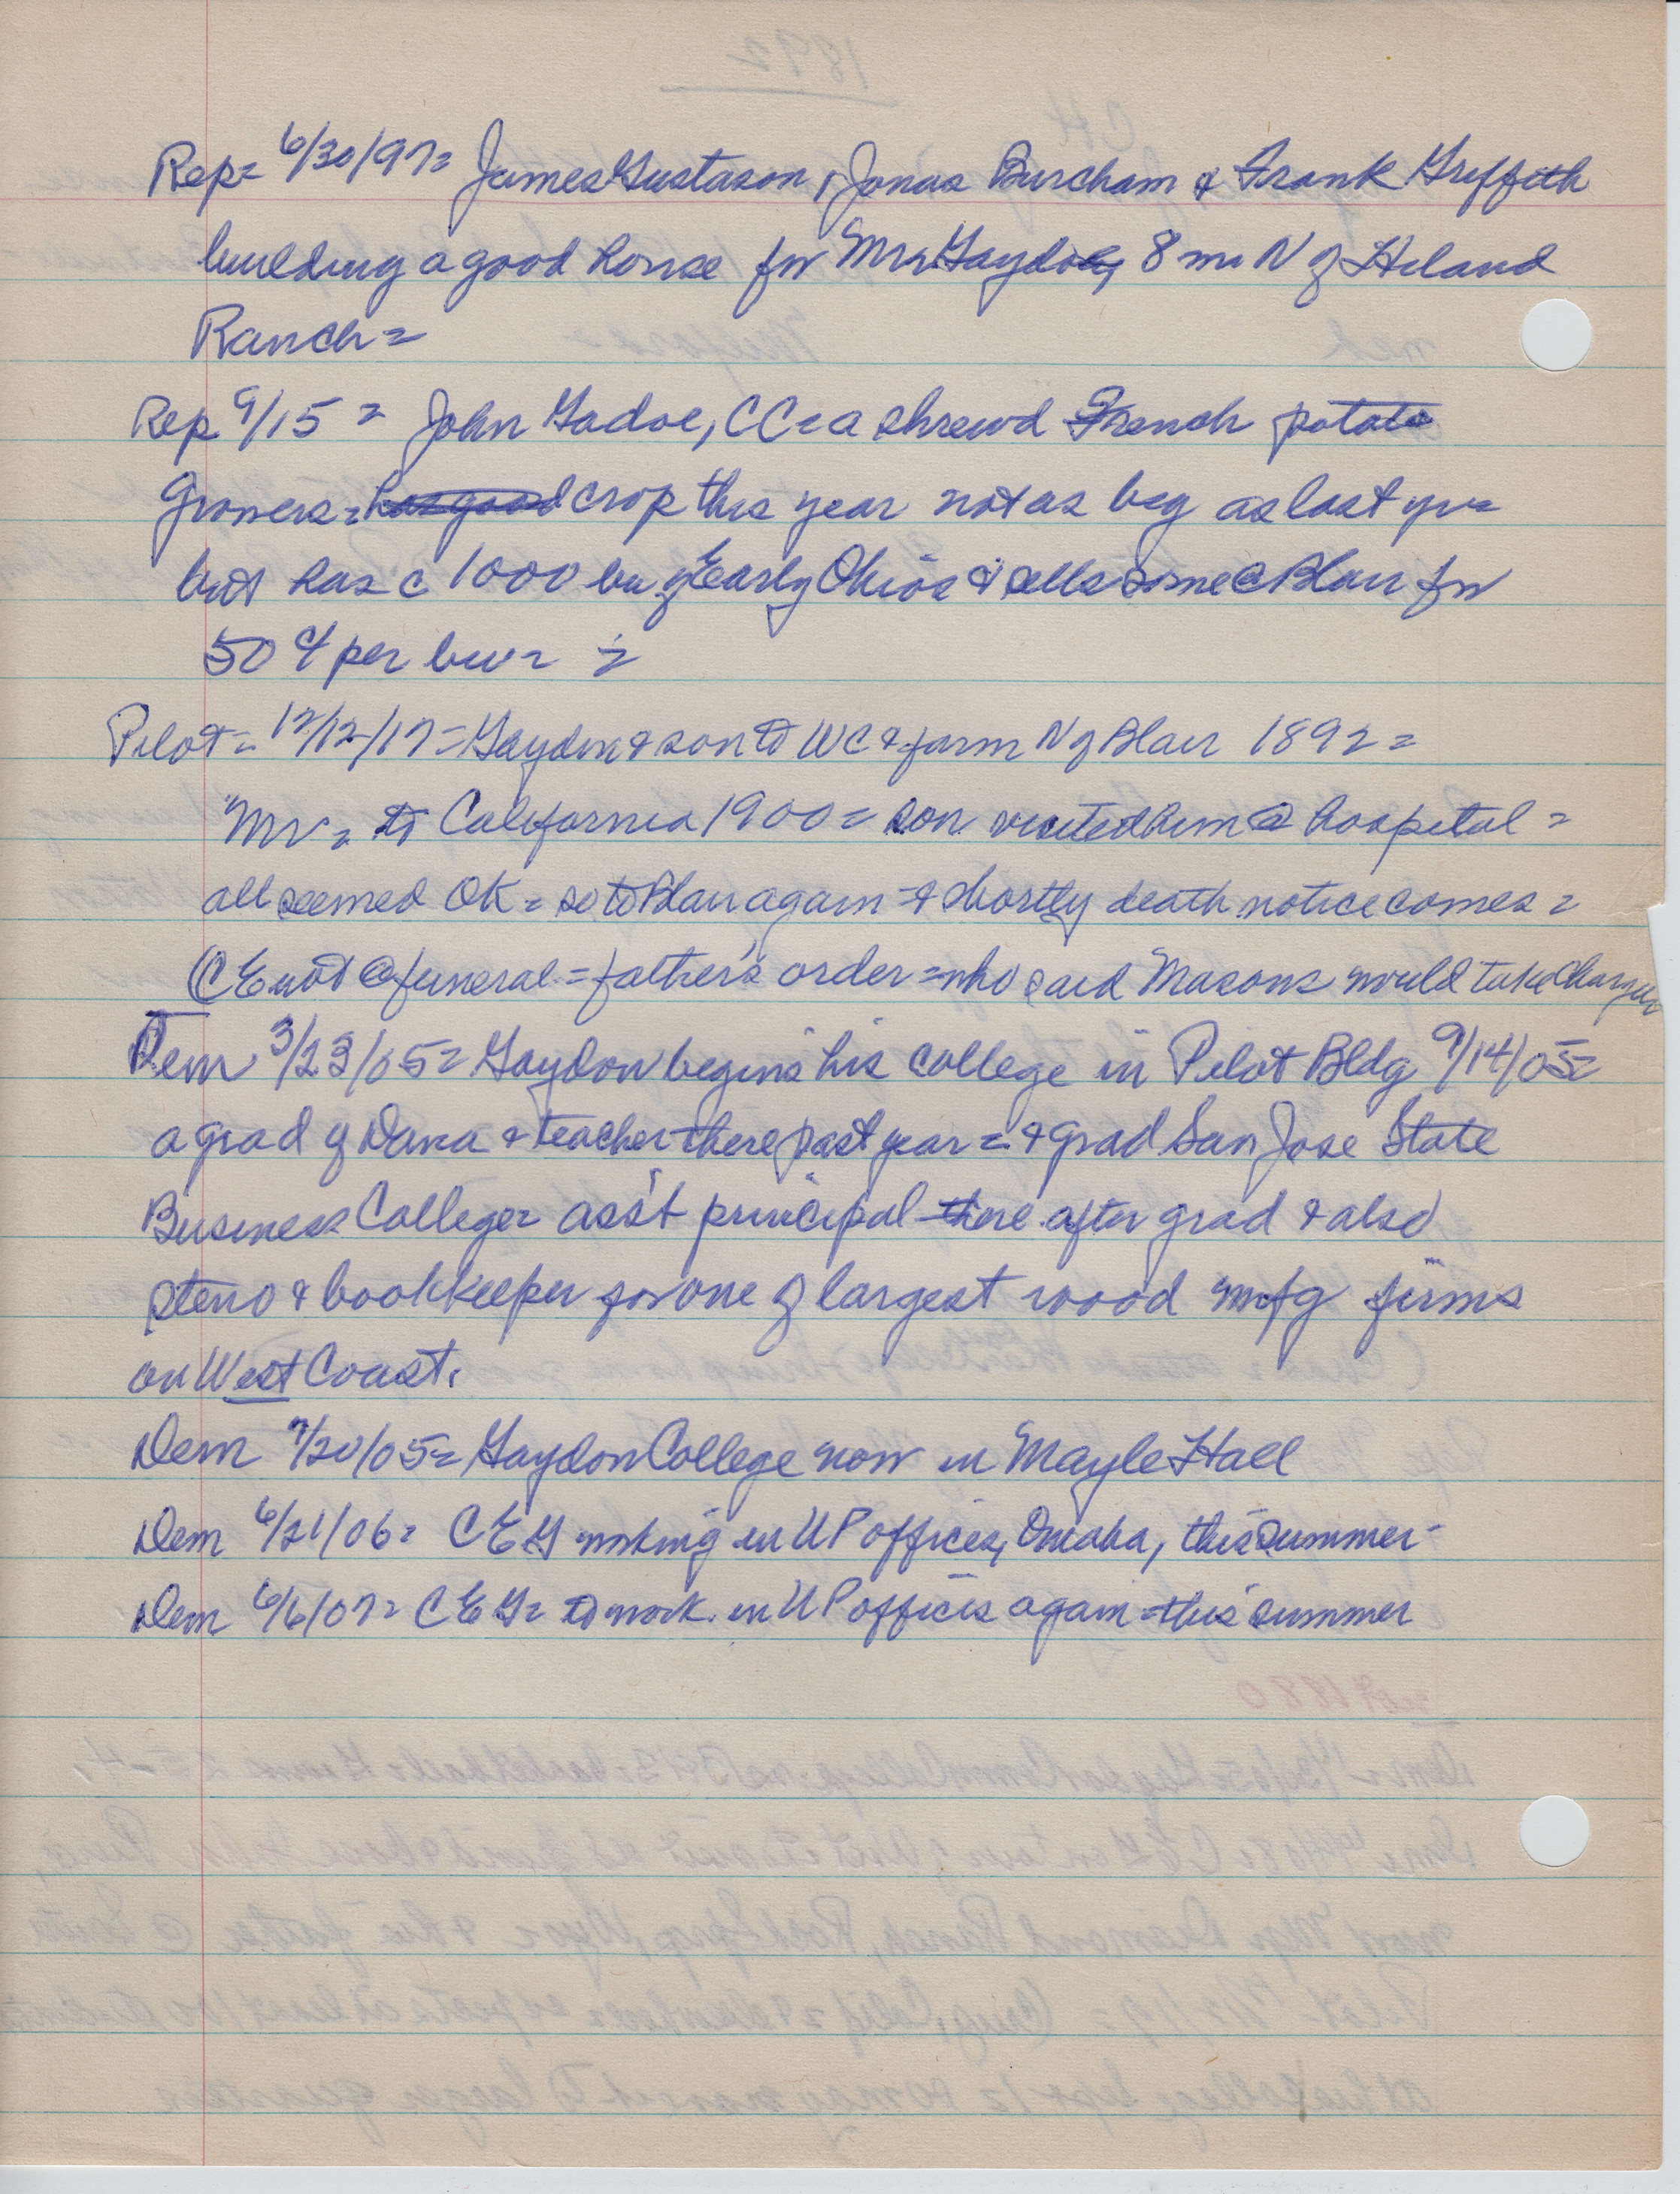 Rep = 6/30/97 = James Gustason, Jonas Burcham & Frank Griffith
building a good house for Mr. Gaydou, 8 mi N of Hiland
Ranch =
Rep 9/15 = John Gadoe, CC = a shrewd French potato
Growers = has good crop this year not as big as last yr =
but has c 1000 bu of Early Ohios & sells some @ Blair for
50 ¢ per bu =
Pilot = 12/12/17 = Gaydou & son to WC & farm N of Blair 1892 =
Mr = to California 1900 = son visited him @ hospital =
all seemed OK = so to Blair again = & shortly death notice comes =
(CE not @ funeral = father's order = who said Masons would take charge
Dem 3/23/05 = Gaydou begins his college in Pilot Bldg 9/14/05 =
a grad of Dana & teacher there past year = & grad San Jose State
Business College = ass't principal there after grad & also
steno & bookkeeper for one of largest wood mfg firms
on West Coast.
Dem 7/20/05 = Gaydou College now in Mayle Hall
Dem 6/21/06 = C E G working in UP offices, Omaha, this summer
Dem 6/6/07 = C E G = to work in UP offices again = this summer